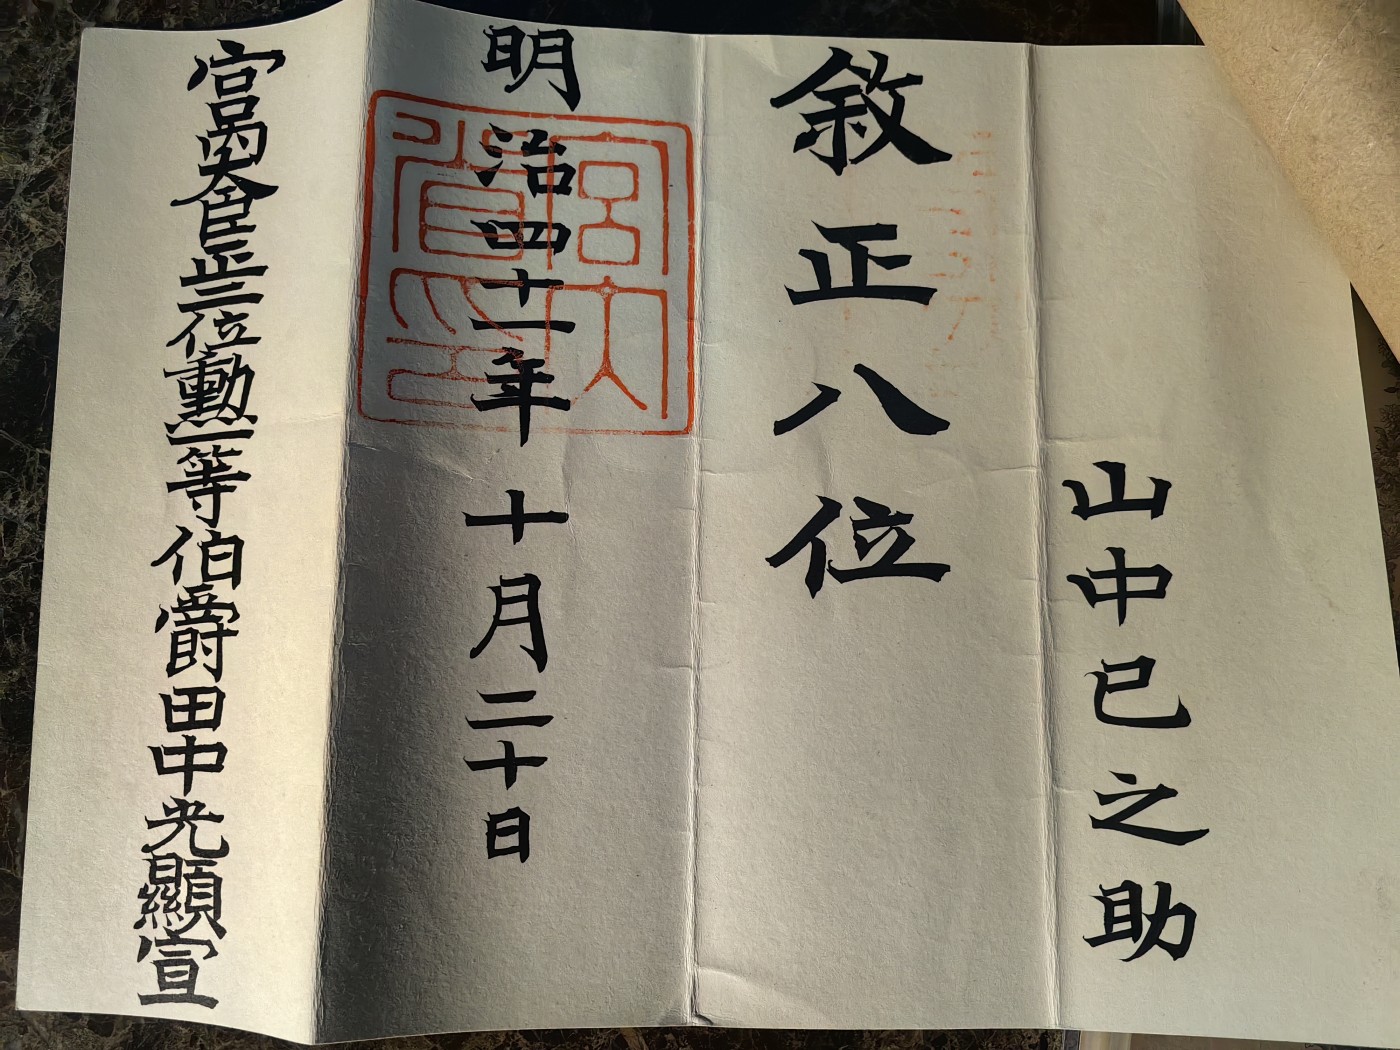 山中已之助
敘正八位
明治四十一年十月二十日
宮內大臣正三位勳一等伯爵田中光顯宣
宮內省印